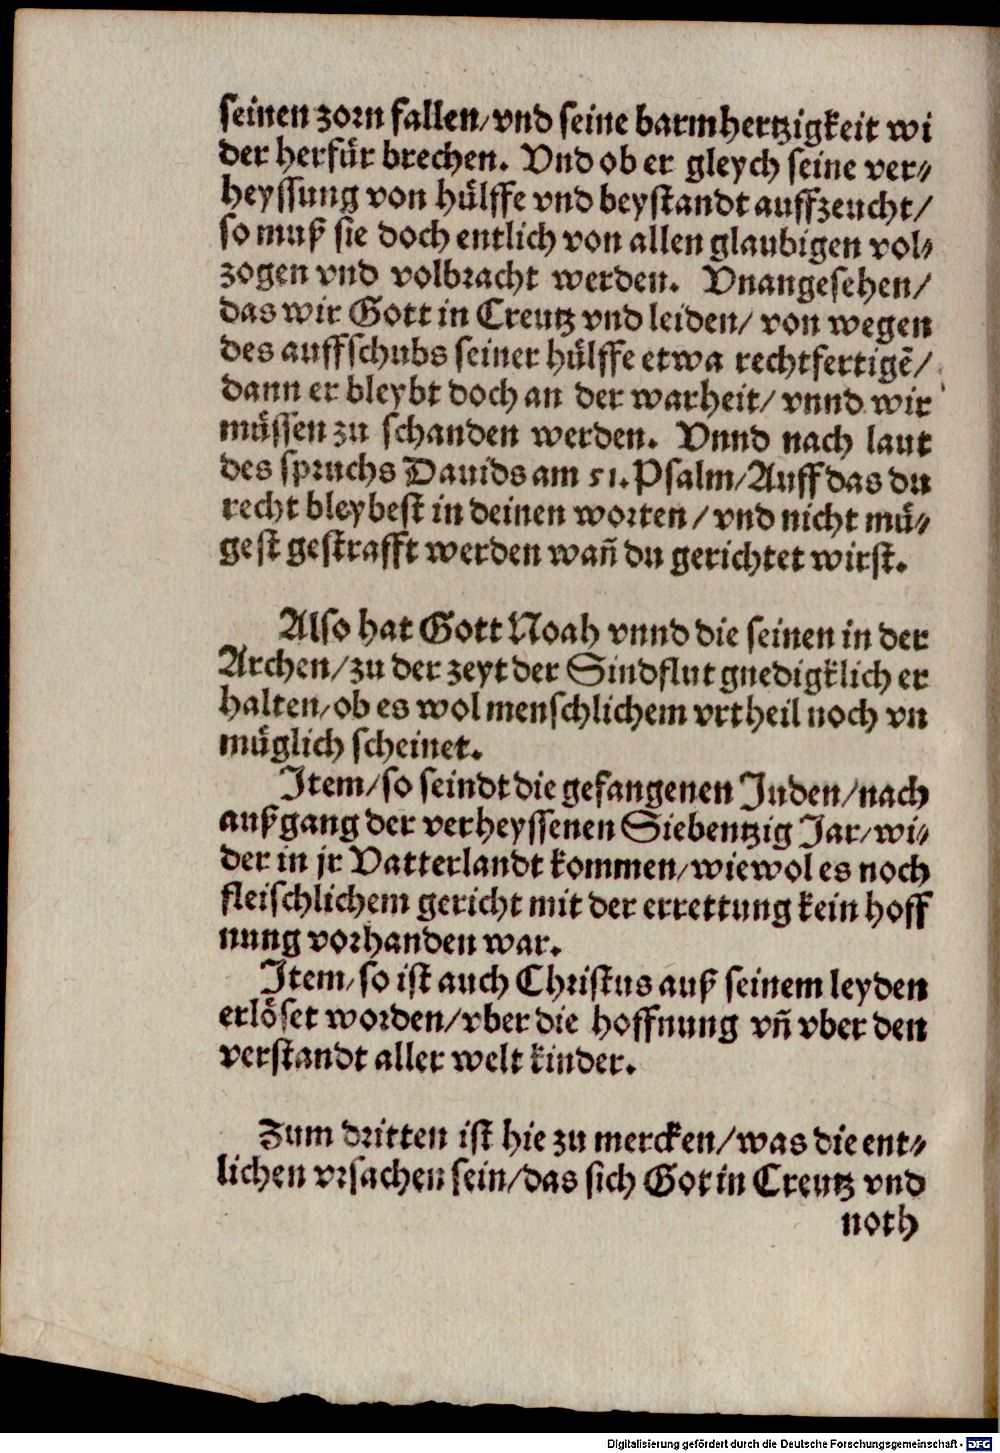 seinen zorn fallen/vnd seine barmhertzigkeit wi
der herfür brechen. Vnd ob er gleych seine ver-
heyssung von hülffe vnd beystandt auffzeucht/
so muß sie doch entlich von allen glaubigen vol-
zogen vnd volbracht werden. Vnangesehen/
das wir Gott in Creutz vnd leiden/ von wegen
des auffschubs seiner hülffe etwa rechtfertigē/
dann er bleybt doch an der warheit/ vnnd wir
müssen zu schanden werden. Vnnd nach laut
des spruchs Dauids am 51. Psalm/Auff das du
recht bleybest in deinen worten/vnd nicht mü-
gest gestrafft werden wañ du gerichtet wirst.
Also hat Gott Noah vnnd die seinen in der
Archen/zu der zeyt der Sindflut gnedigklich er
halten/ob es wol menschlichem vrtheil noch vn
müglich scheinet.
Item/so seindt die gefangenen Juden/nach
außgang der verheyssenen Siebentzig Jar/wi-
der in jr Vatterlandt kommen/wiewol es noch
fleischlichem gericht mit der errettung kein hoff
nung vorhanden war.
Item/so ist auch Christus auß seinem leyden
erlöset worden/vber die hoffnung vñ vber den
verstandt aller welt kinder.
Zum dritten ist hie zu mercken/was die ent-
lichen vrsachen sein/das sich Got in Creutz vnd
noth
Digitalisierung gefördert durch die Deutsche Forschungsgemeinschaft - DFG